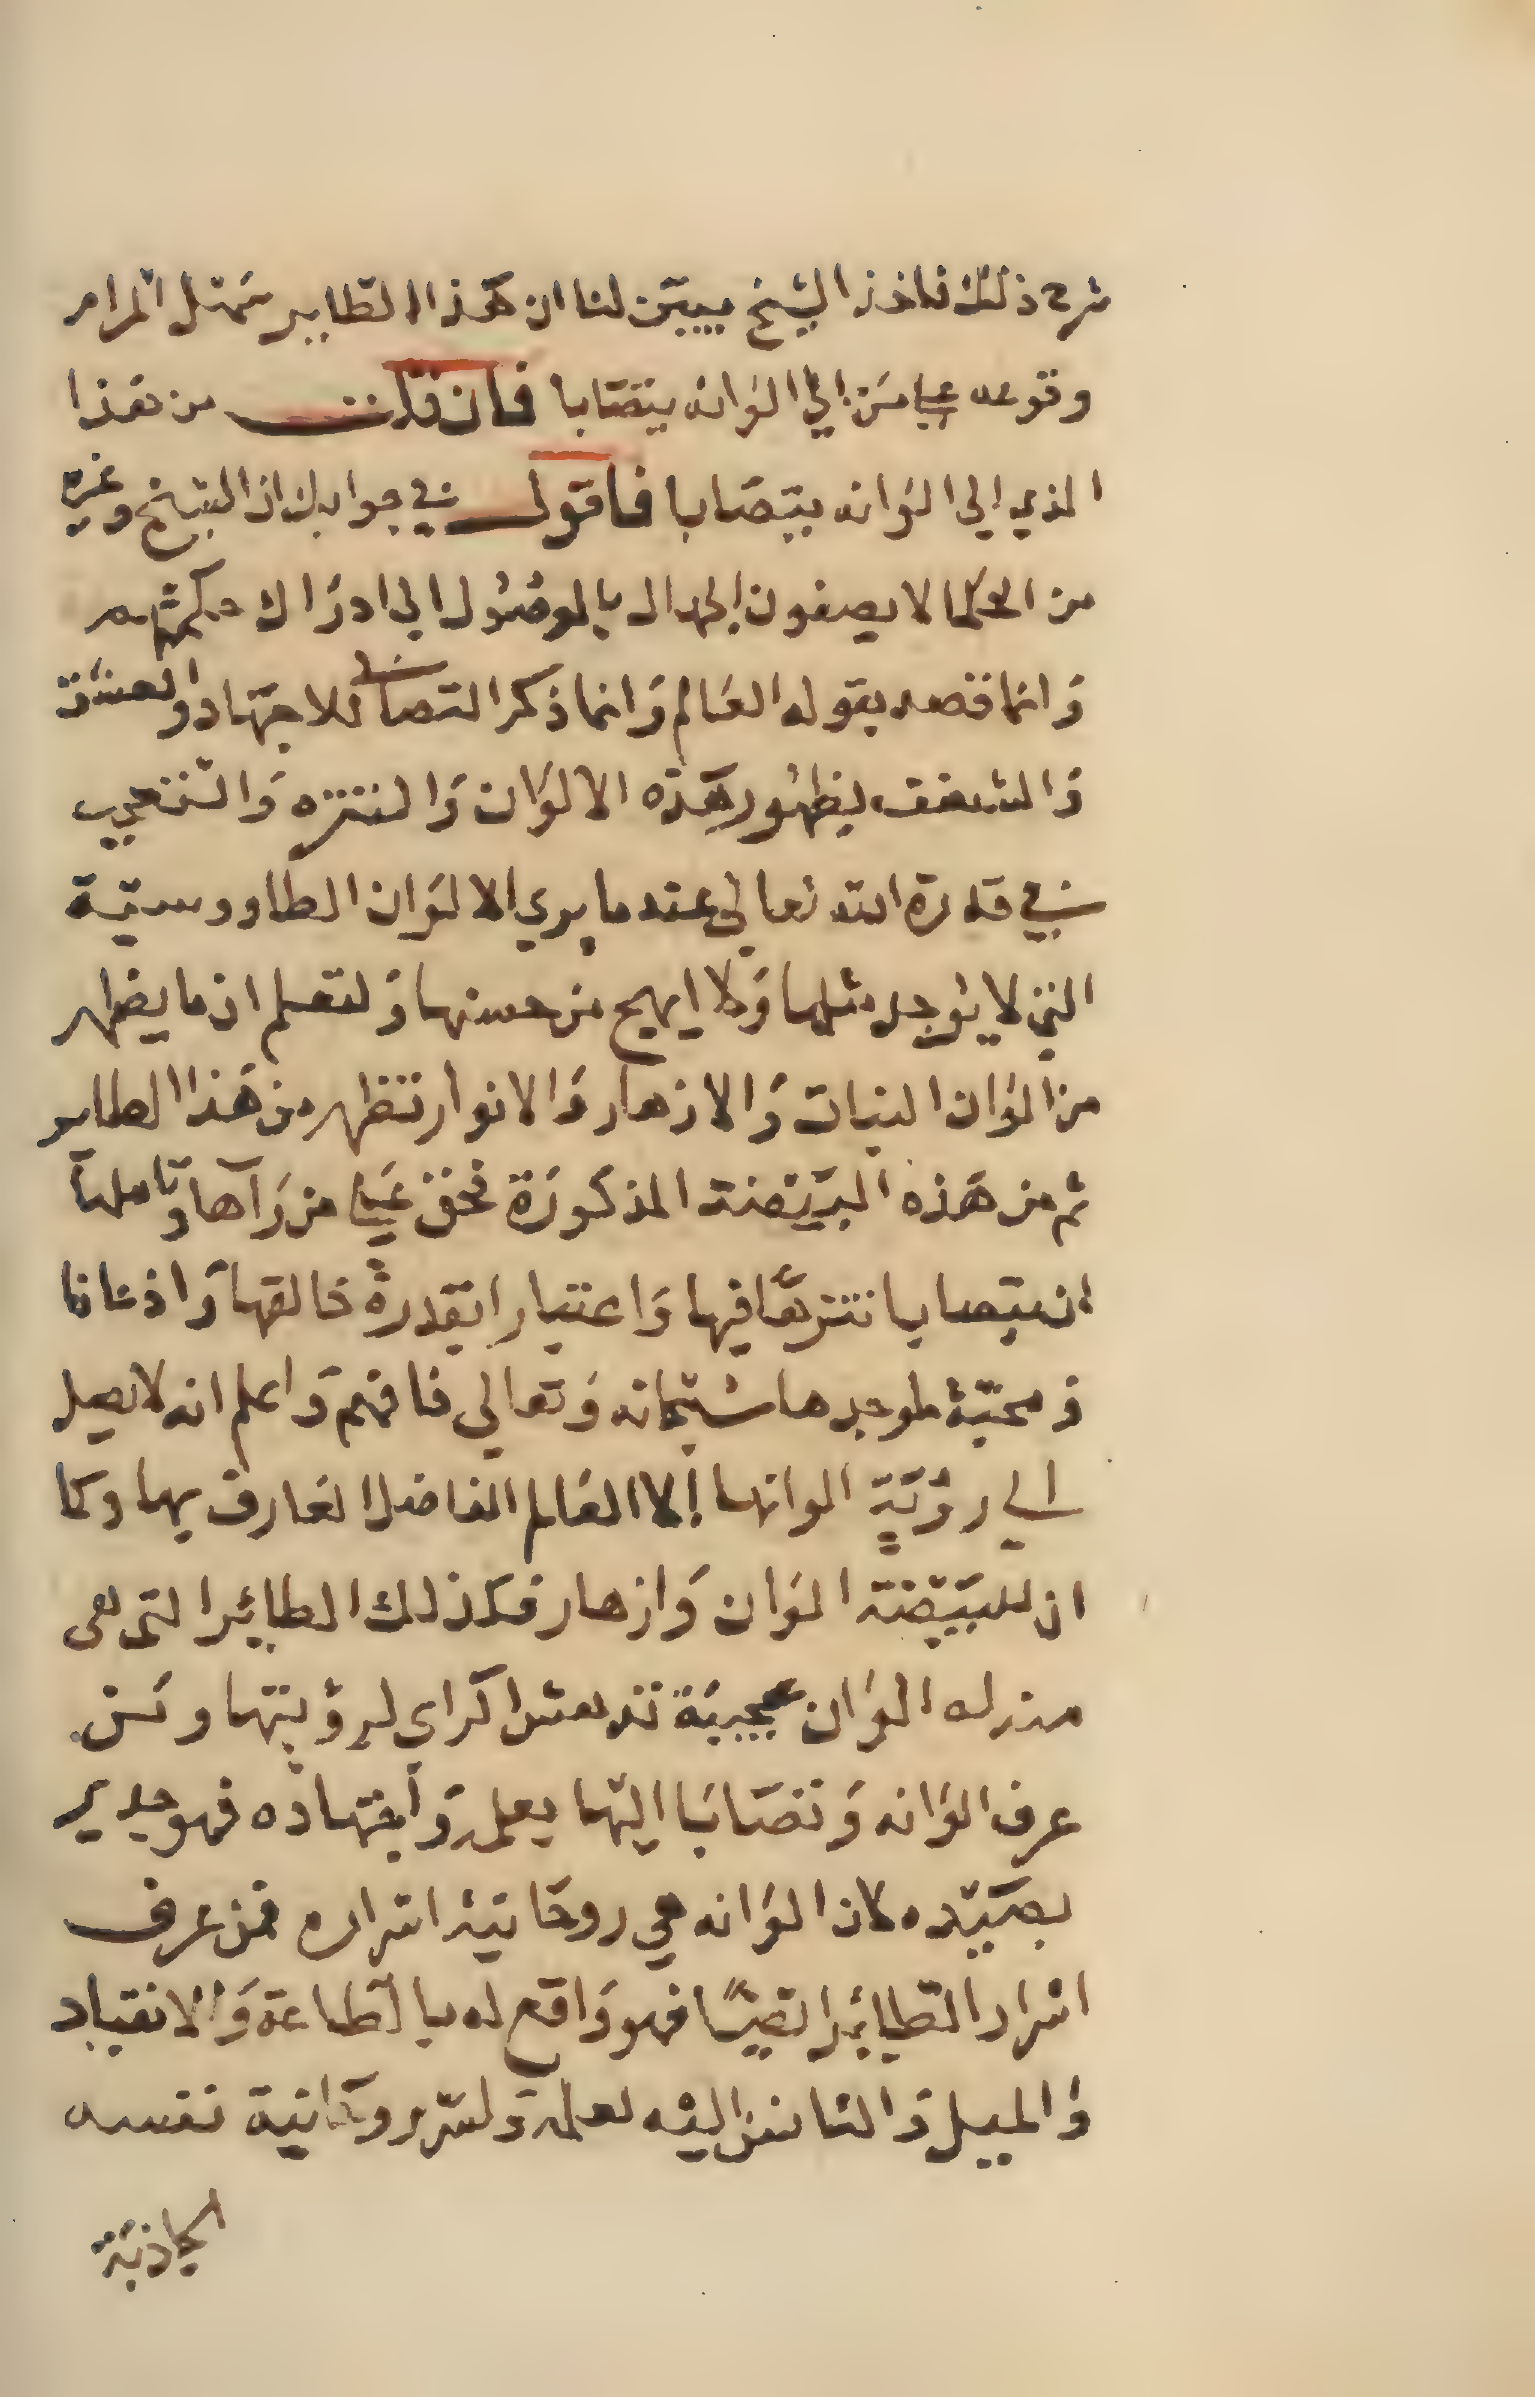 شرح ذلك فاخذ الشيخ يبيّن لنا ان هَذا الطّاير سَهْل المرام
وقوعه علي مَن الي الوَانه يتصَابا فان قلت من هَذا
الذي الي الوَانه يتصَابا فاقول في جوابك ان الشيخ وغيره
من الحكما لا يصفون الجهال بالوصُول الي ادرَاك حكمتهم
وَانما قصد بقوله العَالم وَانما ذكر التصابي للاجتهاد والعشق
وَالشغف بظهُور هَذه الالوَان وَالتنزه وَالتعجب
في قدرة الله تعالي عندما يري الالوَان الطاووسيّة
التي لا يوجد مثلها وَلا ابهج من حسنها وَلتعلم ان ما يظهر
من الوَان النبات وَالازهار وَالانوار تظهر من هَذا الطاير
ثم من هَذه البيضة المذكورَة فحق عَلي من رَآها وتاملها
ان يتصابا تنزهًا فيها وَاعتبارا بقدرة خالقها وَاذعانا
وَمحبّة لموجدها سُبحانه وَتعالي فافهم وَاعلم انه لا يصل
الي رؤيَة الوانها الا العَالم الفاضل العَارف بها وكما
ان للبَيْضة الوَان وَازهار فكذلك الطائر التي هي
منزله الوَان عجيبَة تدهش الراي لرؤيتها ومَن
عرف الوَانه وَتصَابَا اليْها بعلمه وَاجتهاده فهو جدير
بصَيْده لان الوَانه هي روحَانية اسراره فمن عرف
اسرار الطّائر ايضًا فهو وَاقع له بالطاعة وَالانقياد
وَالميل وَالتانس اليْه لعلمه وَلسر روحَانية نفسه
الجاذبَة